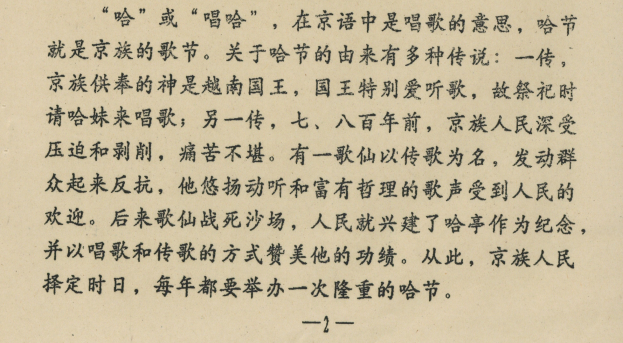 “哈”或“唱哈”，在京语中是唱歌的意思，哈节
就是京族的歌节。关于哈节的由来有多种传说：一传，
京族供奉的神是越南国王，国王特别爱听歌，故祭祀时
请哈妹来唱歌；另一传，七、八百年前，京族人民深受
压迫和剥削，痛苦不堪。有一歌仙以传歌为名，发动群
众起来反抗，他悠扬动听和富有哲理的歌声受到人民的
欢迎。后来歌仙战死沙场，人民就兴建了哈亭作为纪念，
并以唱歌和传歌的方式赞美他的功绩。从此，京族人民
择定时日，每年都要举办一次隆重的哈节。
—2—